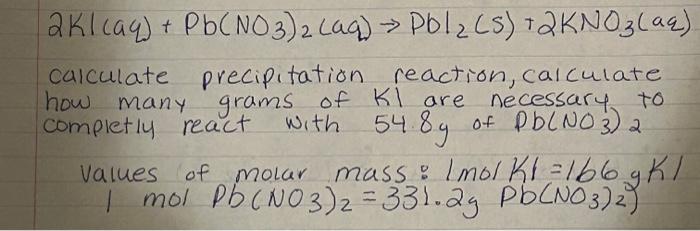 2KI(aq) + Pb(NO3)2 (aq) → PbI2(s) + 2KNO3(aq)
calculate precipitation reaction, calculate
how many grams of KI are necessary to
completly react with 54.8g of Pb(NO3)2
Values of molar mass: 1mol KI = 166 gKI
1 mol Pb(NO3)2 = 331.2g Pb(NO3)2)